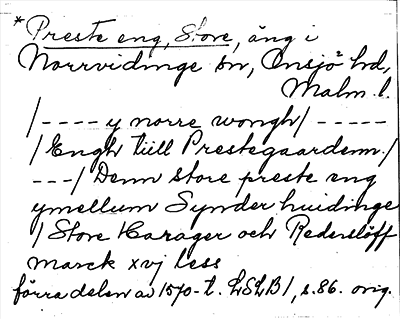 *Preste eng, Store, äng i
Norrvidinge sn, Onsjö hd,
Malm. l.
/---- y norre wongh/ -----
/ Engh tiill Prestegaardenn./
---/ Denn store preste eng
ymellum Synder huidinge
/ Store Harager och Rederslöff
marck xvj less
förra delen av 1570-t. LSLB 1, s. 86. orig.